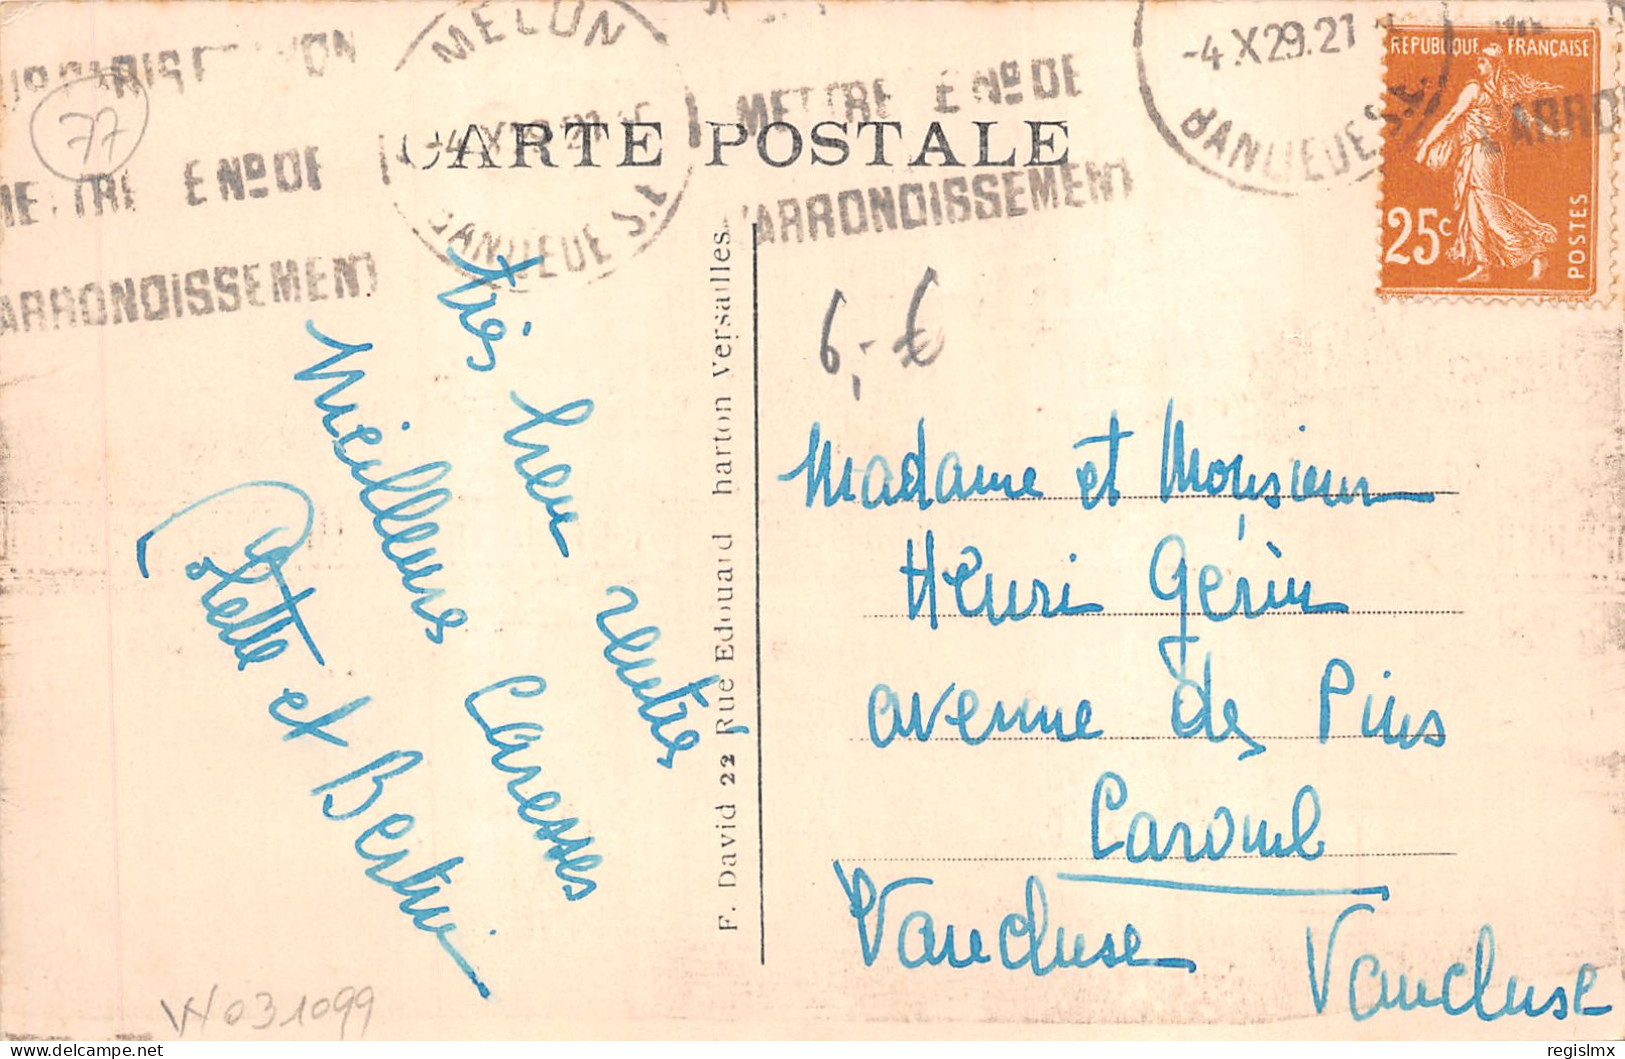 MELUN
-4.X29.21
BANLIEUE S.E
METTRE LE Nº DE
L'ARRONDISSEMENT
MELUN
-4.X29.21
BANLIEUE S.E
METTRE LE Nº DE
L'ARRONDISSEMENT
77
CARTE POSTALE
REPUBLIQUE FRANÇAISE
25c
POSTES
6,-€
très bien rentrés
Meilleures Caresses
Colette et Bertin
F. David 22 Rue Edouard harton Versailles
Madame et Monsieur
Henri Gérin
avenue des Pins
Caromb
Vaucluse
Vaucluse
W031099
regislmx